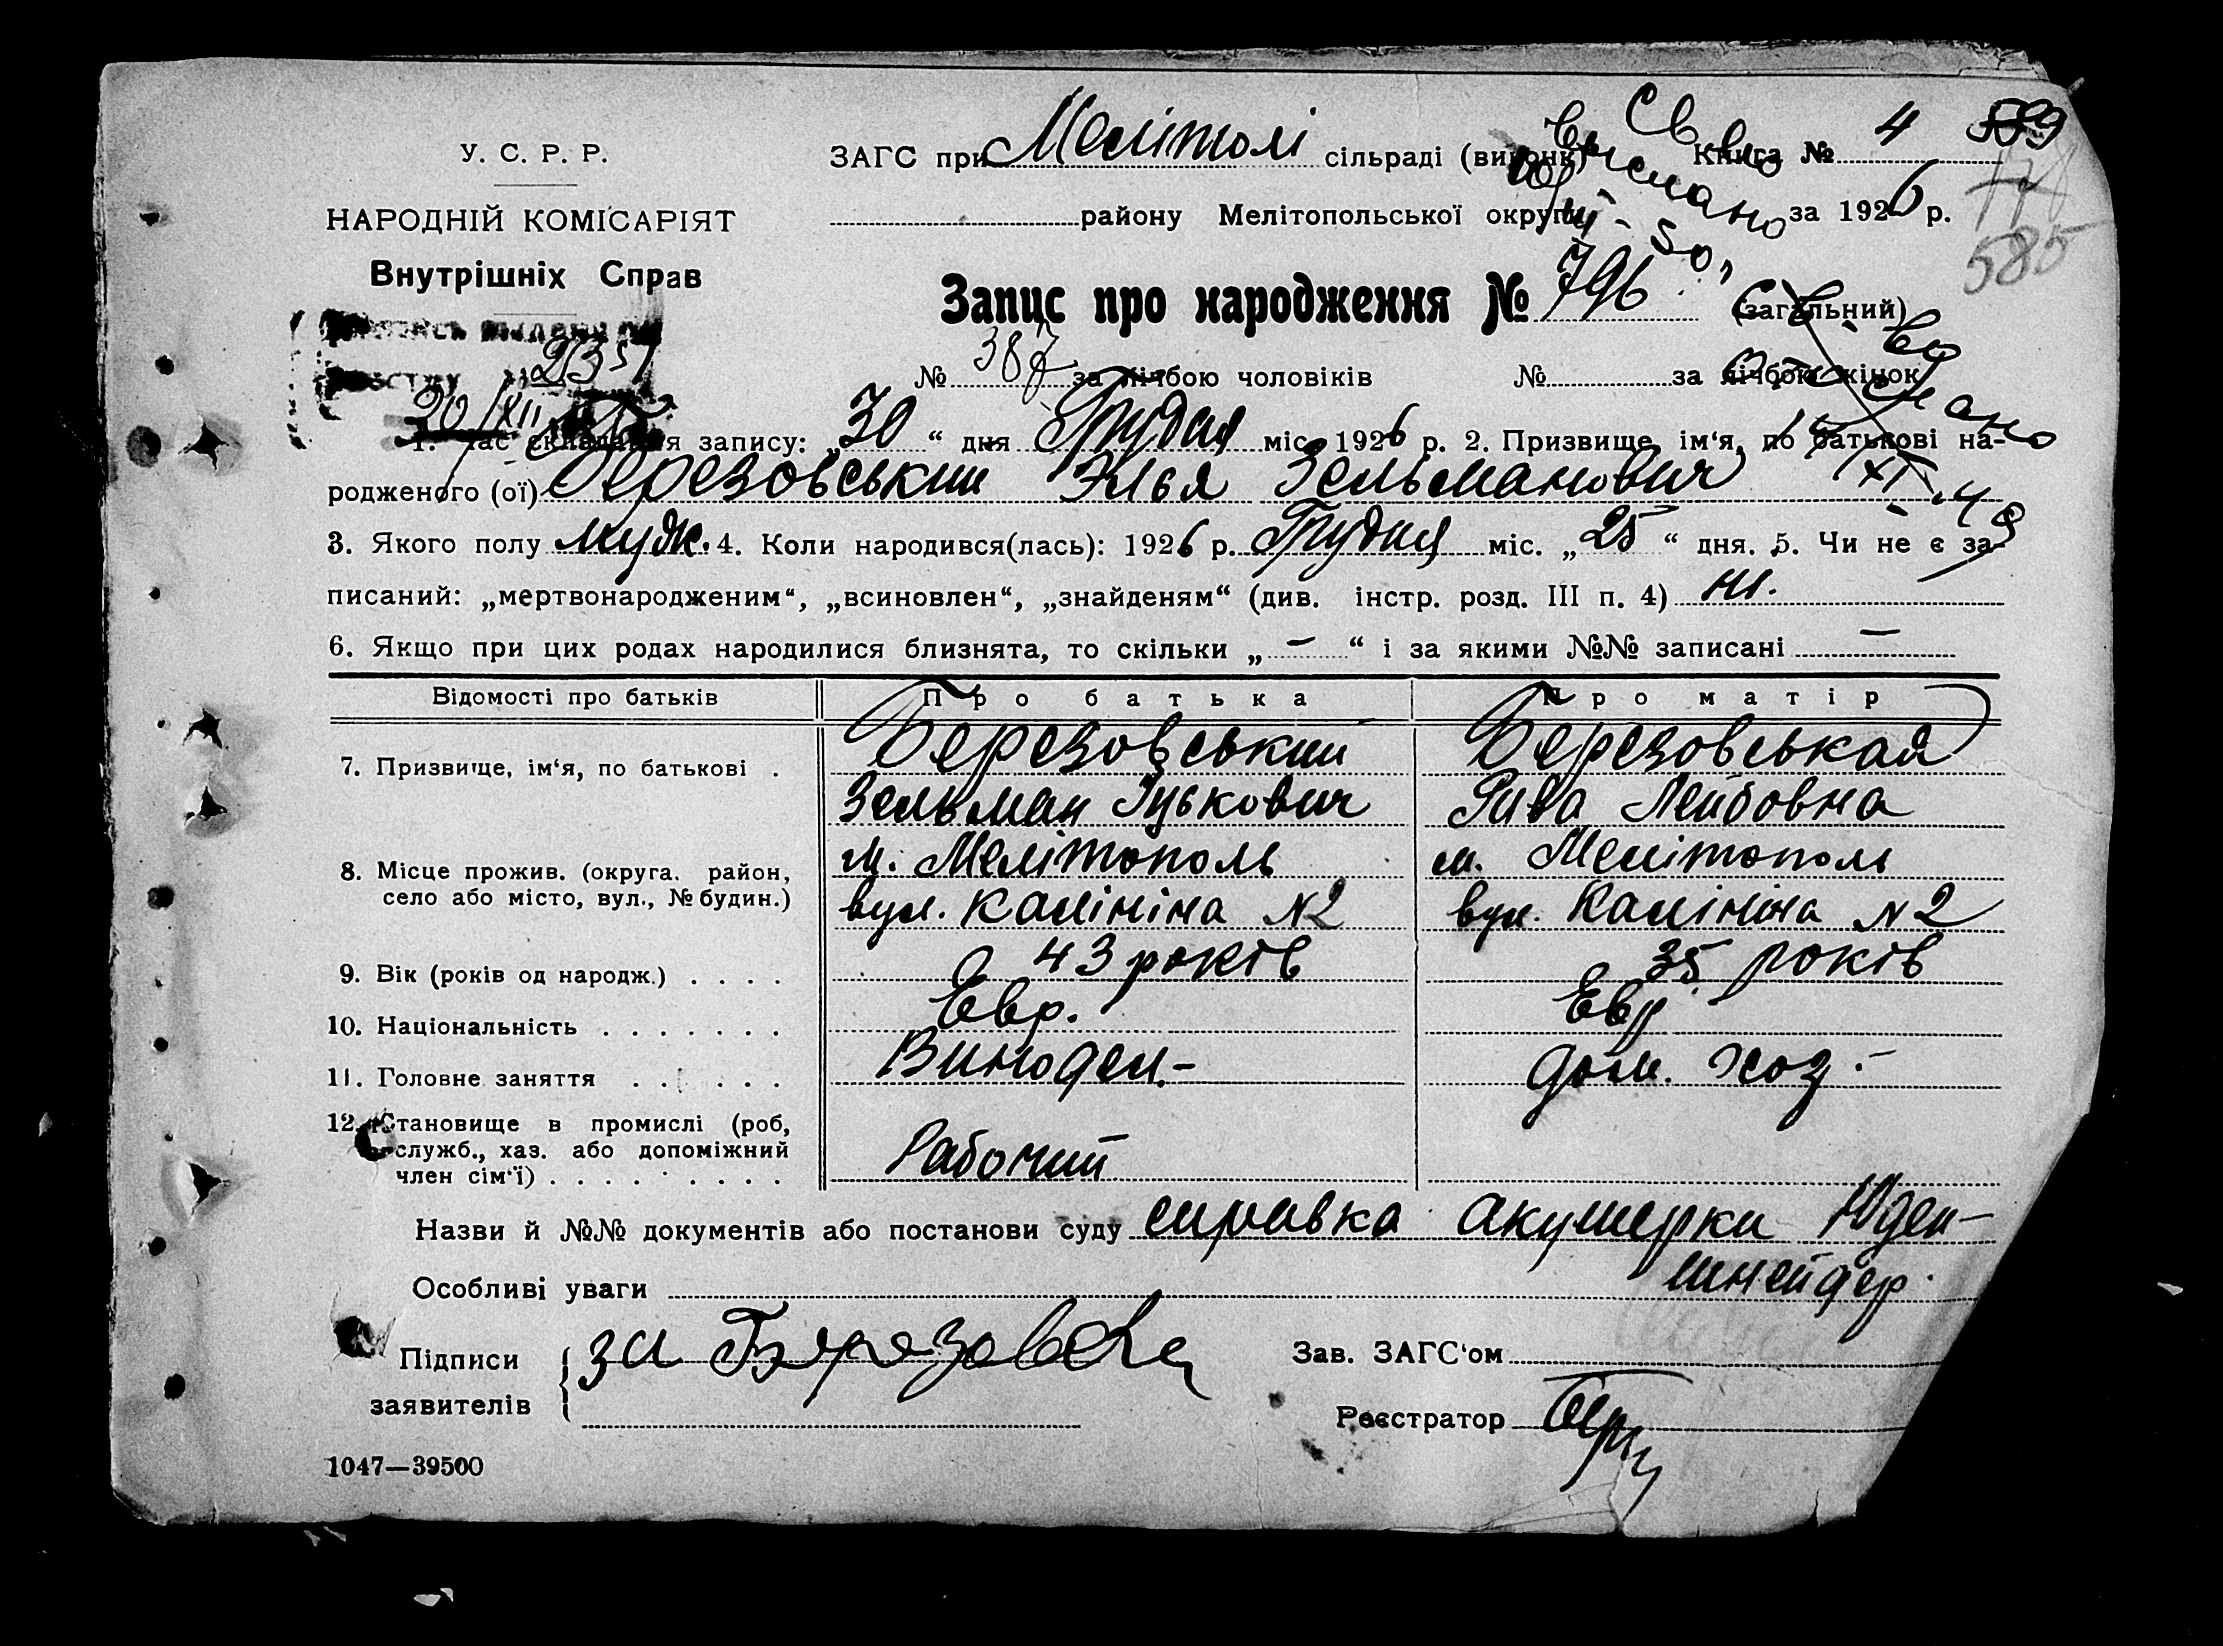 У. С. Р. Р.
НАРОДНІЙ КОМІСАРІЯТ
Внутрішніх Справ
ЗАГС при Мелітополі сільраді (виконк) Книга № 4 589
Св во
выслано
178
району Мелітопольської округи за 1926 р.
50
585
Запис про народження № 796 (загальний)
2351
№ 387 за лічбою чоловіків № за лічбою жінок
Св во
выслано
XI 49
30/XII
1. Час складання запису: „30“ дня Грудня міс. 1926 р. 2. Призвище, ім‘я, по батькові на-
родженого (ої) Березовський Элья Зельманович
3. Якого полу муж. 4. Коли народився(лась): 1926 р. Грудня міс. „25“ дня. 5. Чи не є за-
писаний: „мертвонародженим“, „всиновлен“, „знайденям“ (див. інстр. розд. III п. 4) ні.
6. Якщо при цих родах народилися близнята, то скільки „ – “ і за якими №№ записані —
Відомості про батьків Про батька Про матір
7. Призвище, ім‘я, по батькові . Березовський Березовськая
Зельман Іцькович Рива Лейбовна
8. Місце прожив. (округа. район, м. Мелітополь м. Мелітополь
село або місто, вул., № будин.) вул. Калініна N2 вул. Калініна N2
9. Вік (років од народж.) . . . . 43 років 35 років
10. Національність . . . . . . . Евр. Евр
11. Головне заняття . . . . . . Винодел.- дом. хоз.-
12. Становище в промислі (роб,
служб., хаз. або допоміжний Рабочий
член сім‘ї) . . . . . . . . .
Назви й №№ документів або постанови суду справка акушерки Юден-
Особливі уваги шнейдер.
Підписи за Зав. ЗАГС‘ом
заявителів Реєстратор
1047—39500